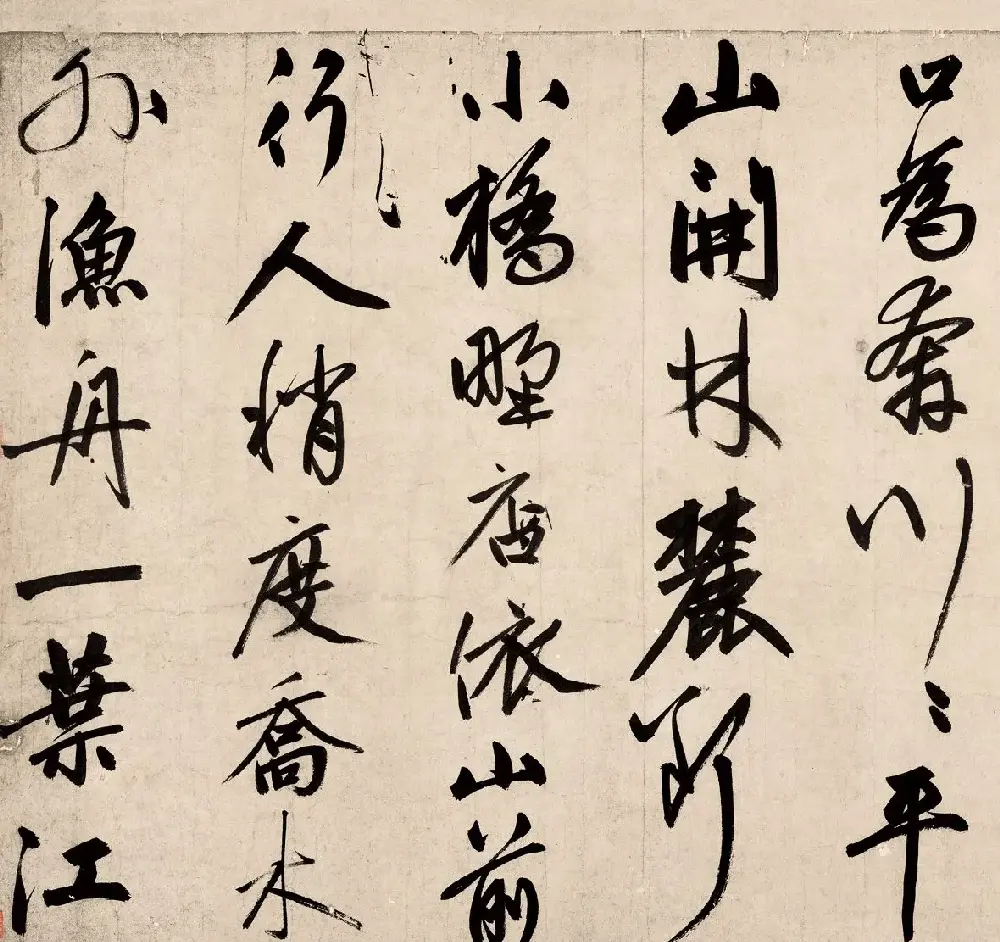 口為奔川川平
山開林麓斷
小橋野店依山前
行人稍度喬木
外漁舟一葉江